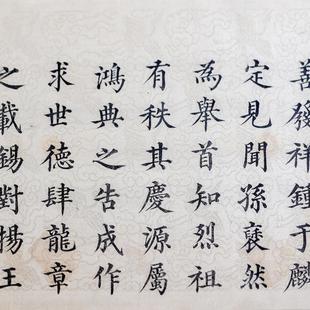 善發祥鍾于麟
定見聞孫褎然
為舉首知烈祖
有秩其慶源屬
鴻典之告成作
求世德肆龍章
之載錫對揚王